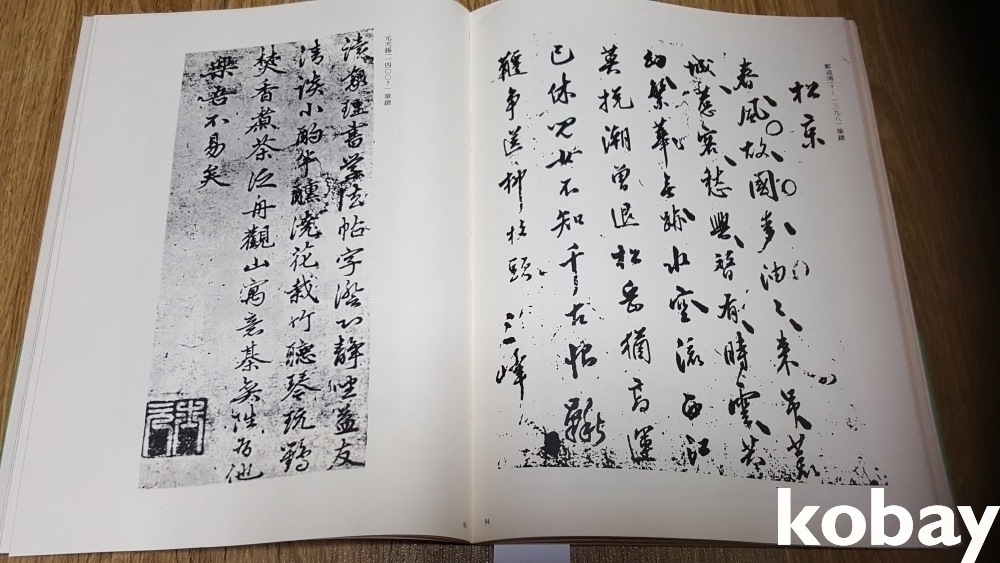 鄭道傳(?-一三九八) 筆蹟
松京
春風故國夢油々來吊荒
城惹客愁興替有時雲若
幻繁華無跡水空流西江
莫挽潮曾退松岳猶高運
已休兒女不知千古恨鞦
韆爭送柳枝頭 三峰
94
元天錫(一四〇〇?) 筆蹟
讀義理書學法帖字澄心靜坐益友
清談小酌半醺澆花栽竹聽琴玩鶴
焚香煮茶泛舟觀山寓意棊奕雖有他
樂吾不易矣
kobay